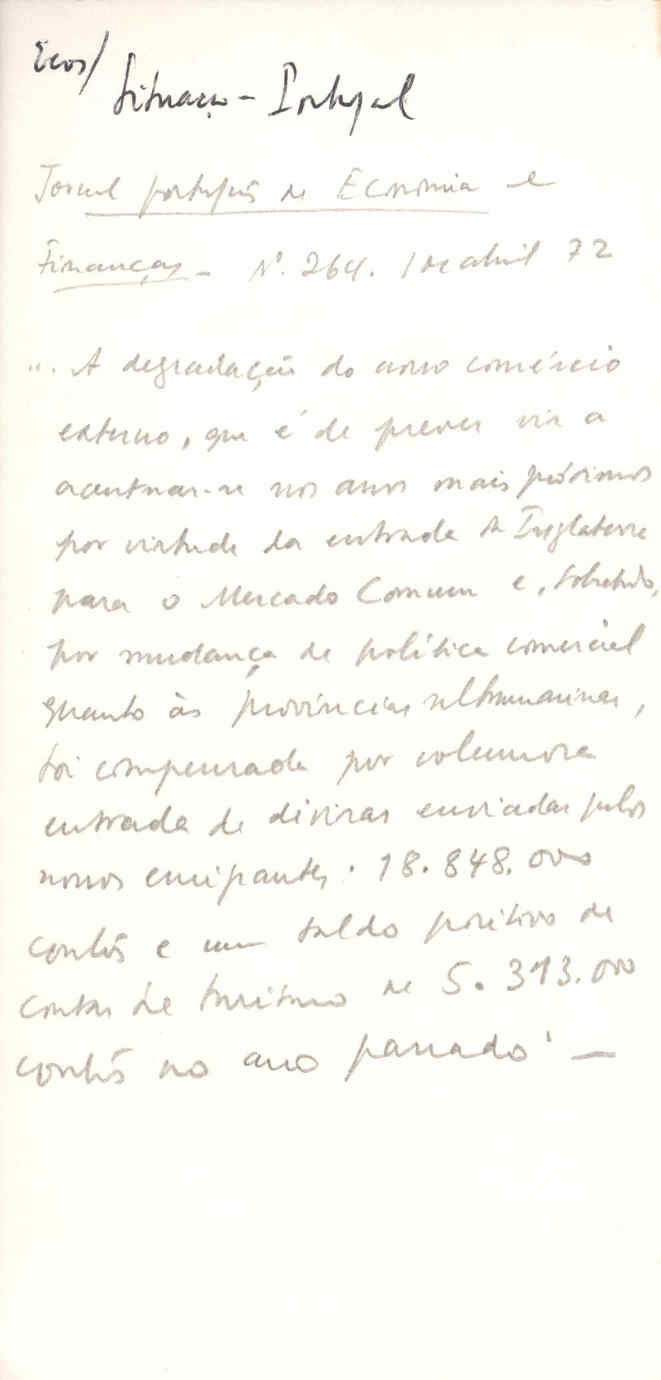 Ecos/
Situação - Portugal
Jornal português de Economia e
Finanças - Nº. 264. 1 de abril 72
". A degradação do nosso comércio
externo, que é de prever vir a
acentuar-se nos anos mais próximos
por virtude da entrada da Inglaterra
para o Mercado Comum e, sobretudo,
por mudança de política comercial
quanto às províncias ultramarinas,
foi compensada por volumosa
entrada de divisas enviadas pelos
nossos emigrantes. 18.848.000
contos e um saldo positivo de
contas de turismo de 5.313.000
contos no ano passado" —